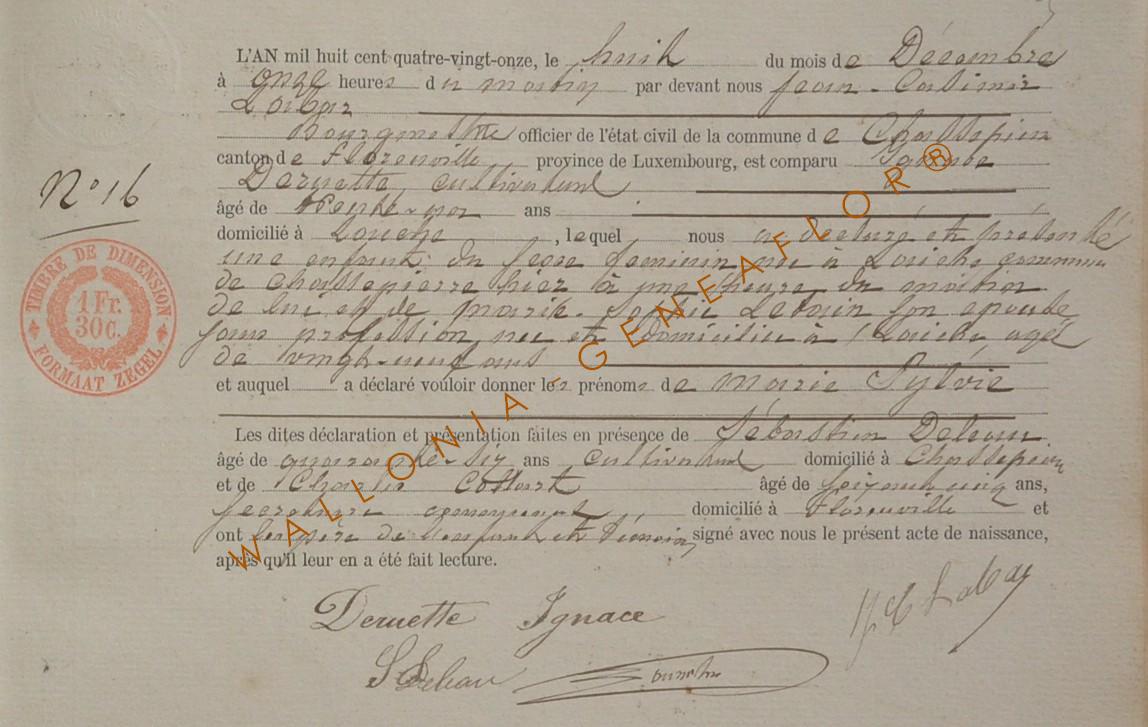 L'AN mil huit cent quatre-vingt-onze, le huit du mois de Décembre
à onze heures du matin par devant nous Jean-Casimir
Labar
Bourgmestre officier de l'état civil de la commune de Chassepierre
canton de Florenville province de Luxembourg, est comparu Ignace
Deruette, cultivateur
N° 16
âgé de trente- ans
domicilié à , lequel nous a déclaré et présenté
une enfant du sexe féminin née à commune
de Chassepierre hier à une heure du matin
de lui et de Marie- son épouse
sans profession née et domiciliée à agée
de vingt-neuf ans
et auquel a déclaré vouloir donner les prénoms de Marie Sylvie
TIMBRE DE DIMENSION
1 Fr.
30 C.
FORMAAT ZEGEL
Les dites déclaration et présentation faites en présence de Sébastien
âgé de quarante-six ans cultivateur domicilié à Chassepierre
et de Charles Collart âgé de soixante cinq ans,
secrétaire communal domicilié à Florenville et
ont le père de l'enfant et témoins signé avec nous le présent acte de naissance,
après qu'il leur en a été fait lecture.
Deruette Ignace
WALLONIA-GENEAFLOR®